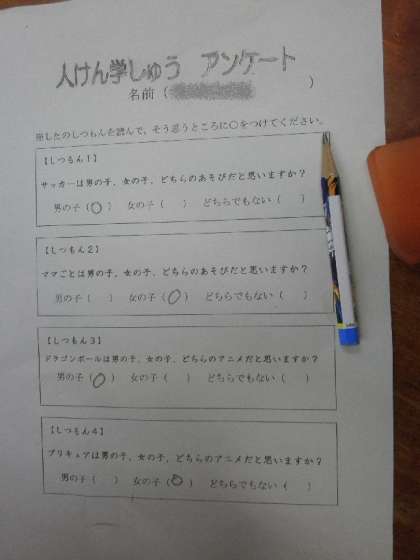 人けん学しゅう アンケート
名前（ ）
下のしつもんを読んで、そう思うところに○をつけてください。
【しつもん１】
サッカーは男の子、女の子、どちらのあそびだと思いますか？
男の子（○） 女の子（ ） どちらでもない（ ）
【しつもん２】
ママごとは男の子、女の子、どちらのあそびだと思いますか？
男の子（ ） 女の子（○） どちらでもない（ ）
【しつもん３】
ドラゴンボールは男の子、女の子、どちらのアニメだと思いますか？
男の子（○） 女の子（ ） どちらでもない（ ）
【しつもん４】
プリキュアは男の子、女の子、どちらのアニメだと思いますか？
男の子（ ） 女の子（○） どちらでもない（ ）